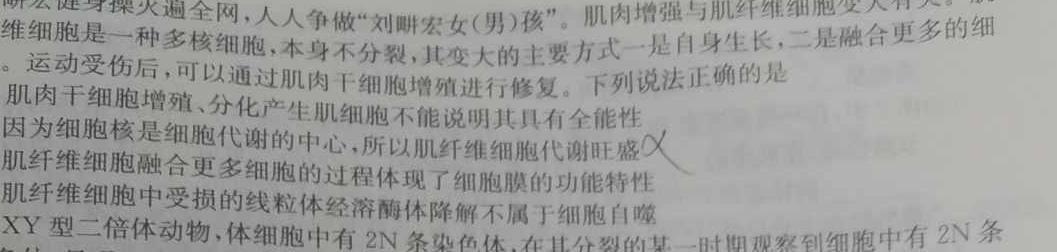 宏健身操火遍全网,人人争做“刘畊宏女(男)孩”。肌肉增强与肌纤维细胞变大有
维细胞是一种多核细胞,本身不分裂,其变大的主要方式一是自身生长,二是融合更多的细
。运动受伤后,可以通过肌肉干细胞增殖进行修复。下列说法正确的是
肌肉干细胞增殖、分化产生肌细胞不能说明其具有全能性
因为细胞核是细胞代谢的中心,所以肌纤维细胞代谢旺盛
肌纤维细胞融合更多细胞的过程体现了细胞膜的功能特性
肌纤维细胞中受损的线粒体经溶酶体降解不属于细胞自噬
XY 型二倍体动物,体细胞中有 2N 条染色体,在其分裂的某一时期观察到细胞中有 2N 条